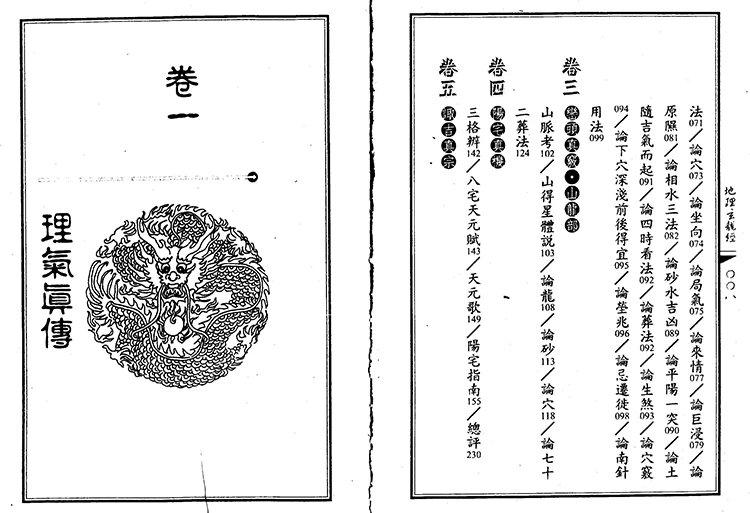 地理玄龍經
〇〇八
法071／論穴073／論坐向074／論局氣075／論來情077／論巨浸079／論
原隰081／論相水三法082／論砂水吉凶089／論平陽一突090／論土
隨吉氣而起091／論四時看法092／論葬法092／論生煞093／論穴竅
094／論下穴深淺前後得宜095／論塋兆096／論忌遷徙098／論南針
用法099
卷三 巒頭真竅・山龍部
山脈考102／山得星體說103／論龍108／論砂113／論穴118／論七十
二葬法124
卷四 陽宅真機
三格辨142／八宅天元賦143／天元歌149／陽宅指南155／總評230
卷五 諏吉真宗
卷一
理氣眞傳